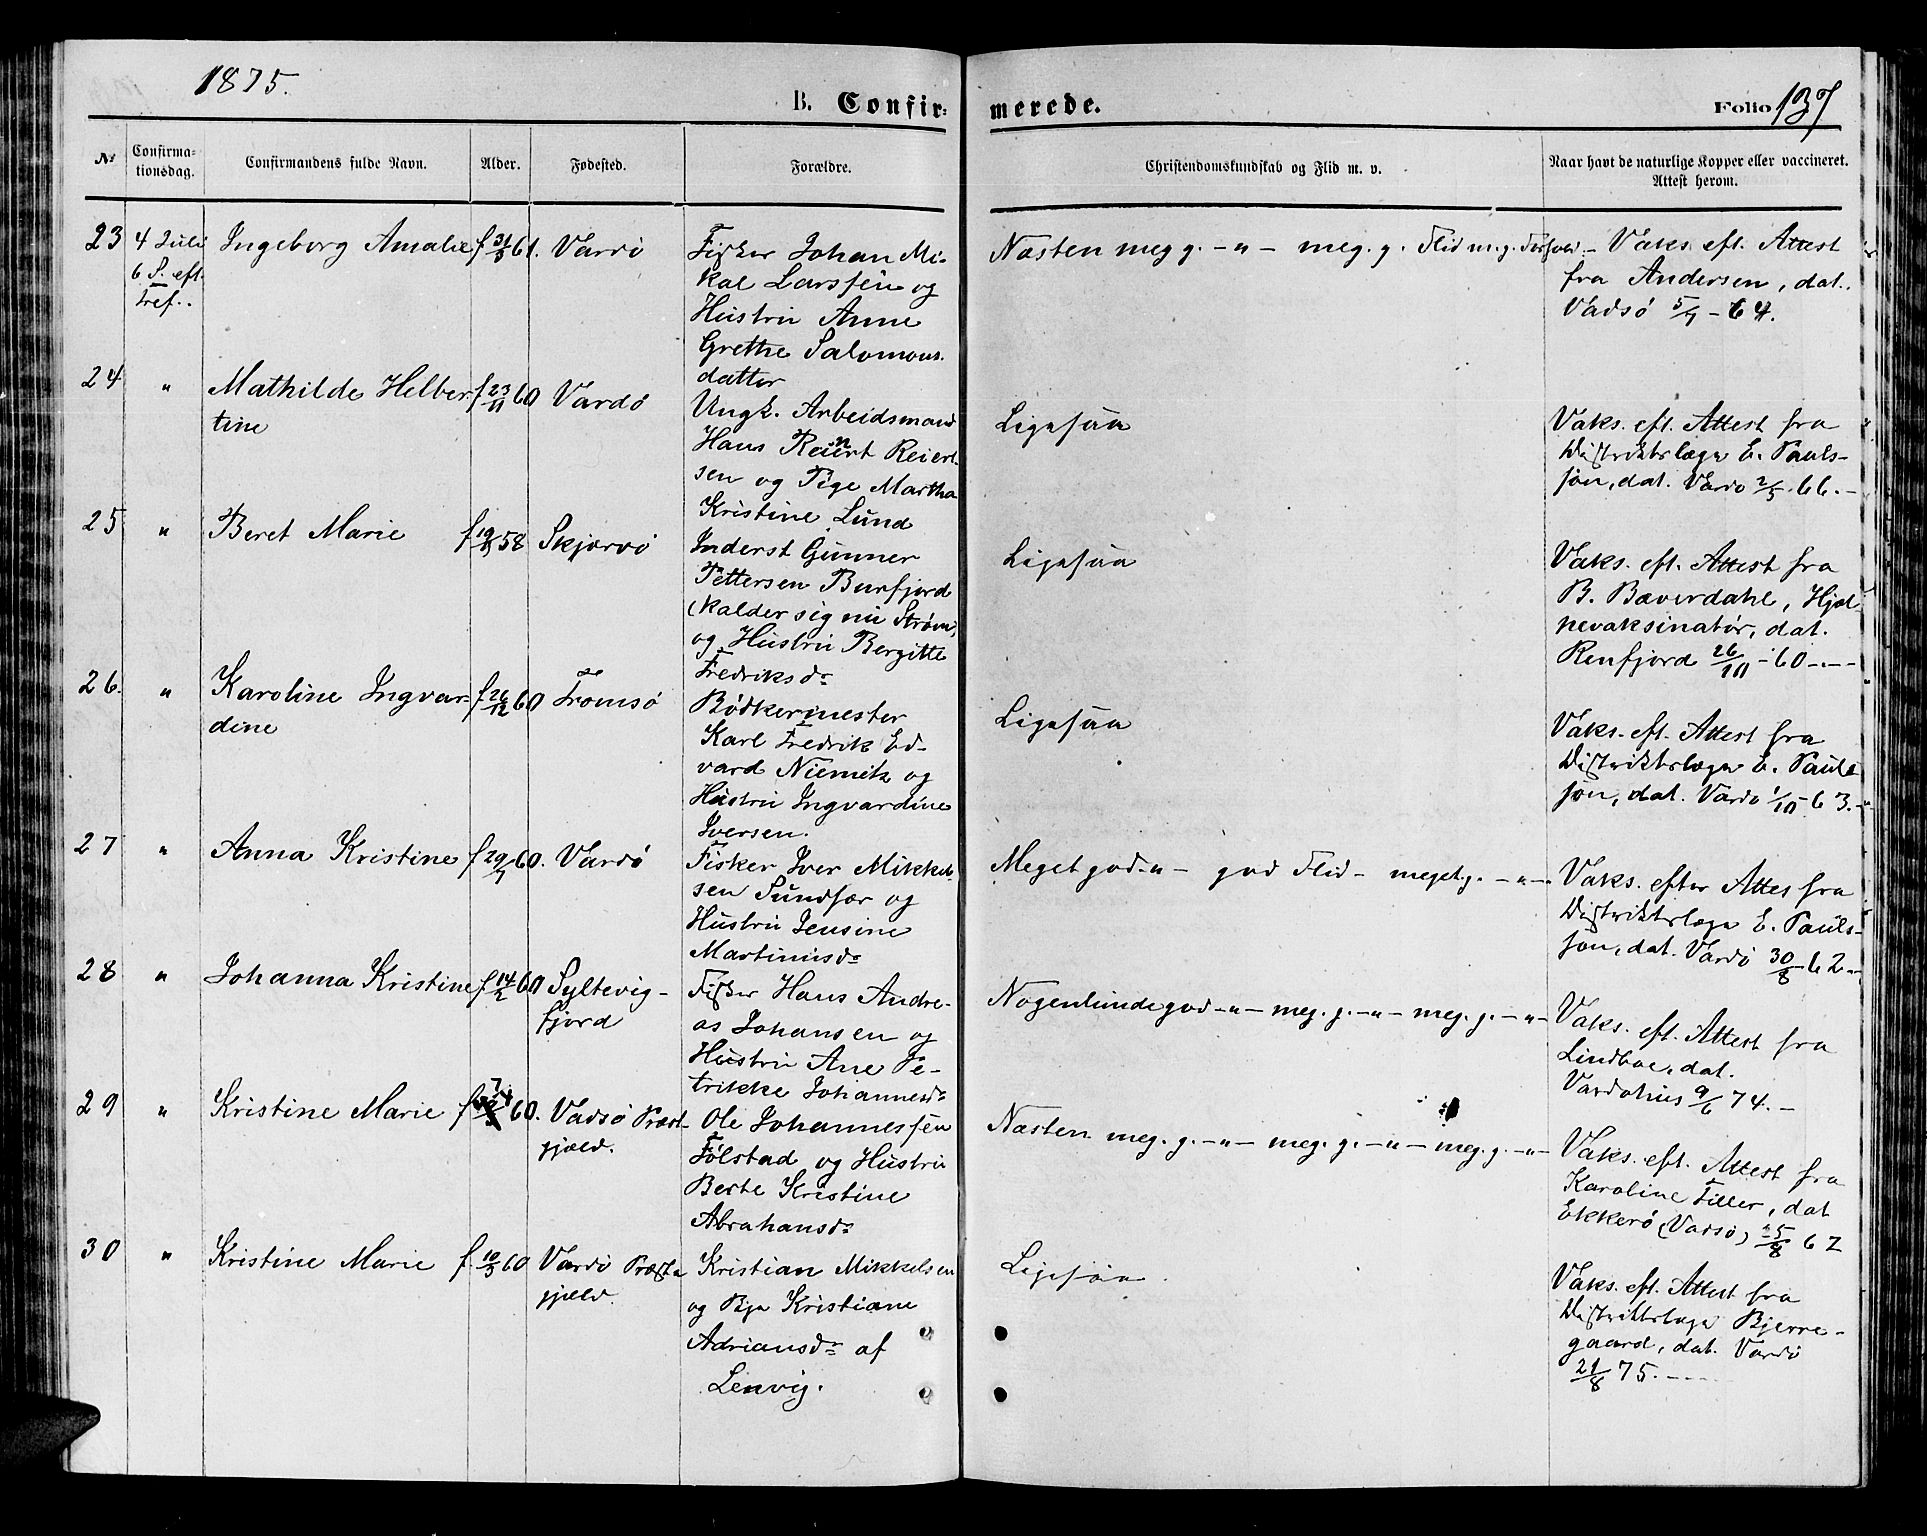 1875.
B. Confir-
merede.
Folio 137
No
Confirma-
tionsdag.
Confirmandens fulde Navn.
Alder.
Fødested.
Forældre.
Christendomskundskab og Flid m. v.
Naar havt de naturlige Kopper eller vaccineret.
Attest herom.
23
4 Juli
6 S. eft.
Tref..
Ingeborg Amalie
f 31/3 61.
Vardö
Fisker Johan Mi-
kal Larssen og
Hustru Anne
Grethe Salomons.
datter
Næsten meg g. -"- meg. g. Flid m. g. Forhold -
Vaks. eft. Attest
fra Andersen, dat.
Vadsö 5/7 - 64.
24
"
Mathilde Helber
tine
f 23/11 60
Vardö
Ungk. Arbeidsmand
Hans Reinert Reiert-
sen og Pige Martha
Kristine Lund
Ligesaa
Vaks. eft. Attest fra
Distriktslæge E. Pauls-
son, dat. Vardö 2/5. 66. -
25
"
Beret Marie
58
Skjærvö
Inderst Gunner
Pettersen Burfjord
(kalder sig nu Ström)
og Hustru Bergitte
Fredriksdr
Ligesaa
Vaks. eft. Attest fra
B. Bæverdahl, Hjæl
pevaksinatör, dat.
Renfjord 26/10 - 60 ----
26.
"
Karoline Ingvar-
dine
f 26/12 60
Tromsö
Bödkermester
Karl Fredrik Ed-
vard Niemitz og
Hustru Ingvardine
Iversen.
Ligesaa
Vaks. eft. Attest fra
Distriktslæge E. Pauls
son, dat. Vardö 1/10 - 63. -
27
"
Anna Kristine
f 29/7 60.
Vardö
Fisker Iver Mikkel-
sen Sundfær og
Hustru Jensine
Martinusdr
Meget god -"- god Flid - meget g. -"-
Vaks. efter Attes fra
Distriktslæge E. Pauls-
son, dat. Vardö 30/8 - 62 -
28
"
Johanna Kristine
f 14/2 60
Syltevig-
fjord
Fisker Hans Andre-
as Johansen og
Hustru Ane Pe-
trikke Johannesdr
Nogenlunde god -"- meg. g. -"- meg. g. -"-
Vaks. eft. Attest fra
Lindboe, dat.
Vardöhus 9/6 74. -
29
"
Kristine Marie
60.
Vadsö Præst-
gjæld.
Ole Johannessen
Fölstad og Hustru
Berte Kristine
Abrahamsdr
Næsten meg. g. -"- meg. g. -"- meg. g. -"-
Vaks. eft. Attest fra
Karoline Filler, dat
Ekkerö (Vadsö) 25/8 62
30
"
Kristine Marie
f. 10/3 60
Vardö Præste
gjæld.
Kristian Mikkelsen
og Kristiane
Adriansdr af
Lenvig.
Ligesaa
Vaks. eft. Attest fra
Distriktslæge Bjerre-
gaard, dat. Vardö
21/8 75. ----